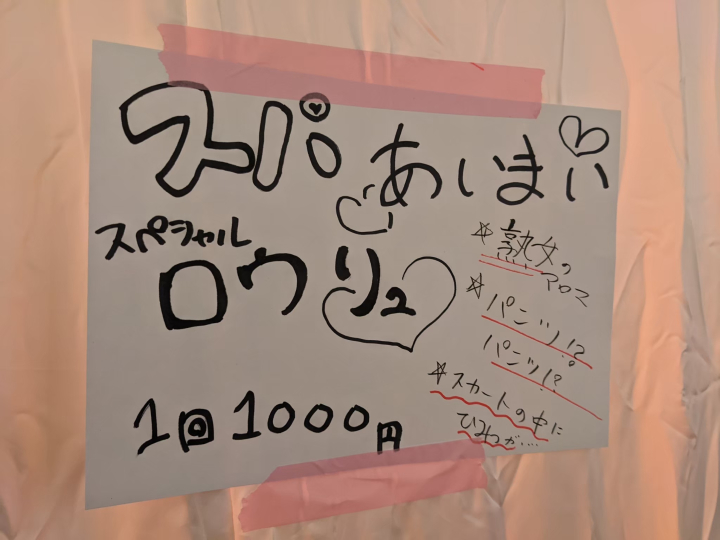 スパ あいまい
スペシャル
ロウリュ
1回1000円
☆熟女の
アロマ
☆パンツ!?
パンツ!?
☆スカートの中に
ひみつが….